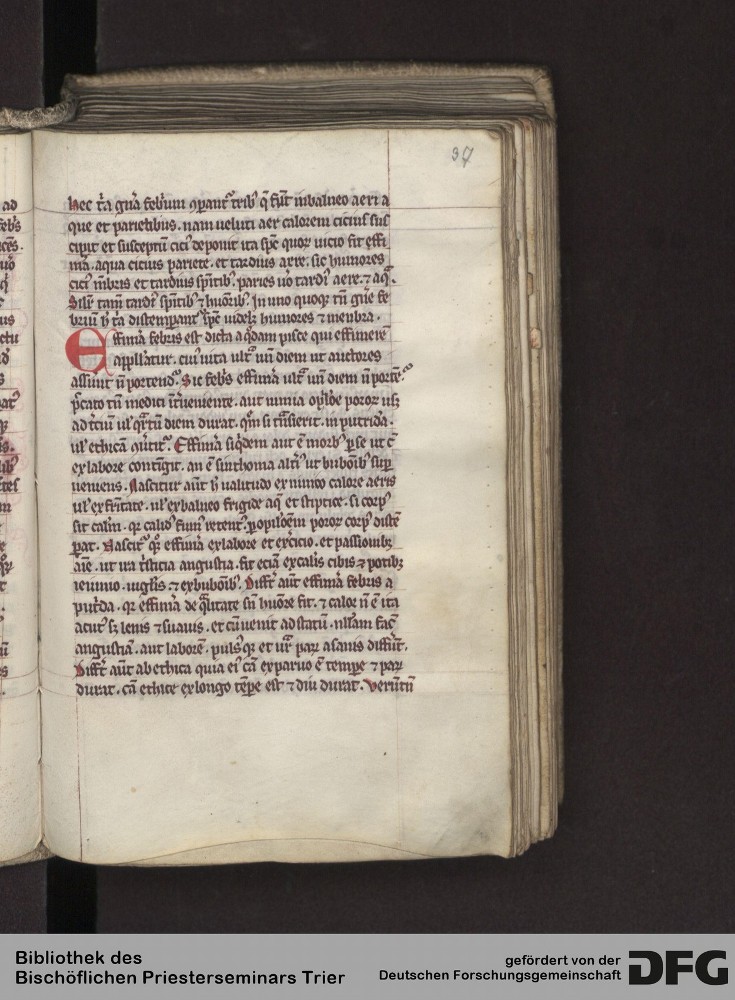 37
hec t̄a gn̄a febrium ꝯparant᷑ tribꝰ q̄ sūt in balneo aeri a
que et parietibus. nam veluti aer calorem cicius sus
cipit et susceptū citiꝰ deponit ita sp̄c quor uicio fit effi
ma. aqua cicius pariete. et tardius aere. sic humores
citiꝰ mēbris et tardius sp̄itibꝰ. paries uō tardiꝰ aere. ⁊ aq̄.
Silīr tam̄ tardiꝰ sp̄itibꝰ ⁊ huōribꝰ. In uno quoqꝫ tn̄ gn̄e fe
brium h̄ t̄a distemperant᷑ sp̄c uidelꝫ humores ⁊ menbra.
Effimīa febris est dicta a q̄dam pisce qui effimerē
appellat᷑. cuiꝰ uita ultͣ unū diem ut auctores
assunt n̄ portendit᷑. Sic febris effimīa ultͣ unū diem n̄ portē᷑
p̄cato tn̄ medici īt̄ueniente. aut nimia opilōe poror usqꝫ
ad t̄ciū ul̓ qͣrtū diem durat. qm̄ si tͣnsierit. in putrida.
ul̓ ethicā mutat᷑. Effimīa siqͥdem aut ē morbꝰ per se ut ē
ex labore contingit. an ē sinthoma alt̄iꝰ ut bubōibꝰ sup̄
ueniens. Nascitur aūt h̄ ualitudo ex nimio calore aeris
ul̓ ex frītate. ul̓ ex balneo frigide aq̄ et stiptice. si corpꝰ
sit calm̄. qr calidꝰ fumꝰ retentꝰ ꝓpt̄ opilōem poror corpꝰ distē
perat. Nascit᷑ qꝫ effimīa ex labore et ex̄cicio. et passionibꝫ
aīe. ut ira t̄sticia angustia. fit eciā ex calīs cibis ⁊ potibꝫ
ieiunio. uigl̓iis. ⁊ ex bubōibꝰ. Differt aūt effimīa febris a
putrīda. qr effimīa de qͣlitate sn̄ huōre fit. ⁊ calor n̄ ē ita
acutꝰ sꝫ lenis ⁊ suauis. et cū uenit ad statū. nullam facit
angustiā. aut laborē. pulsꝰqꝫ et urīa parꝝ a sanis diffūt.
Differt aūt ab ethica quia eiꝰ cā ex paruo ē tempe ⁊ parꝝ
durat. cā ethice ex longo tēpe est ⁊ diu durat. Verūtn̄
ad
Bibliothek des
Bischöflichen Priesterseminars Trier
gefördert von der
Deutschen Forschungsgemeinschaft
DFG